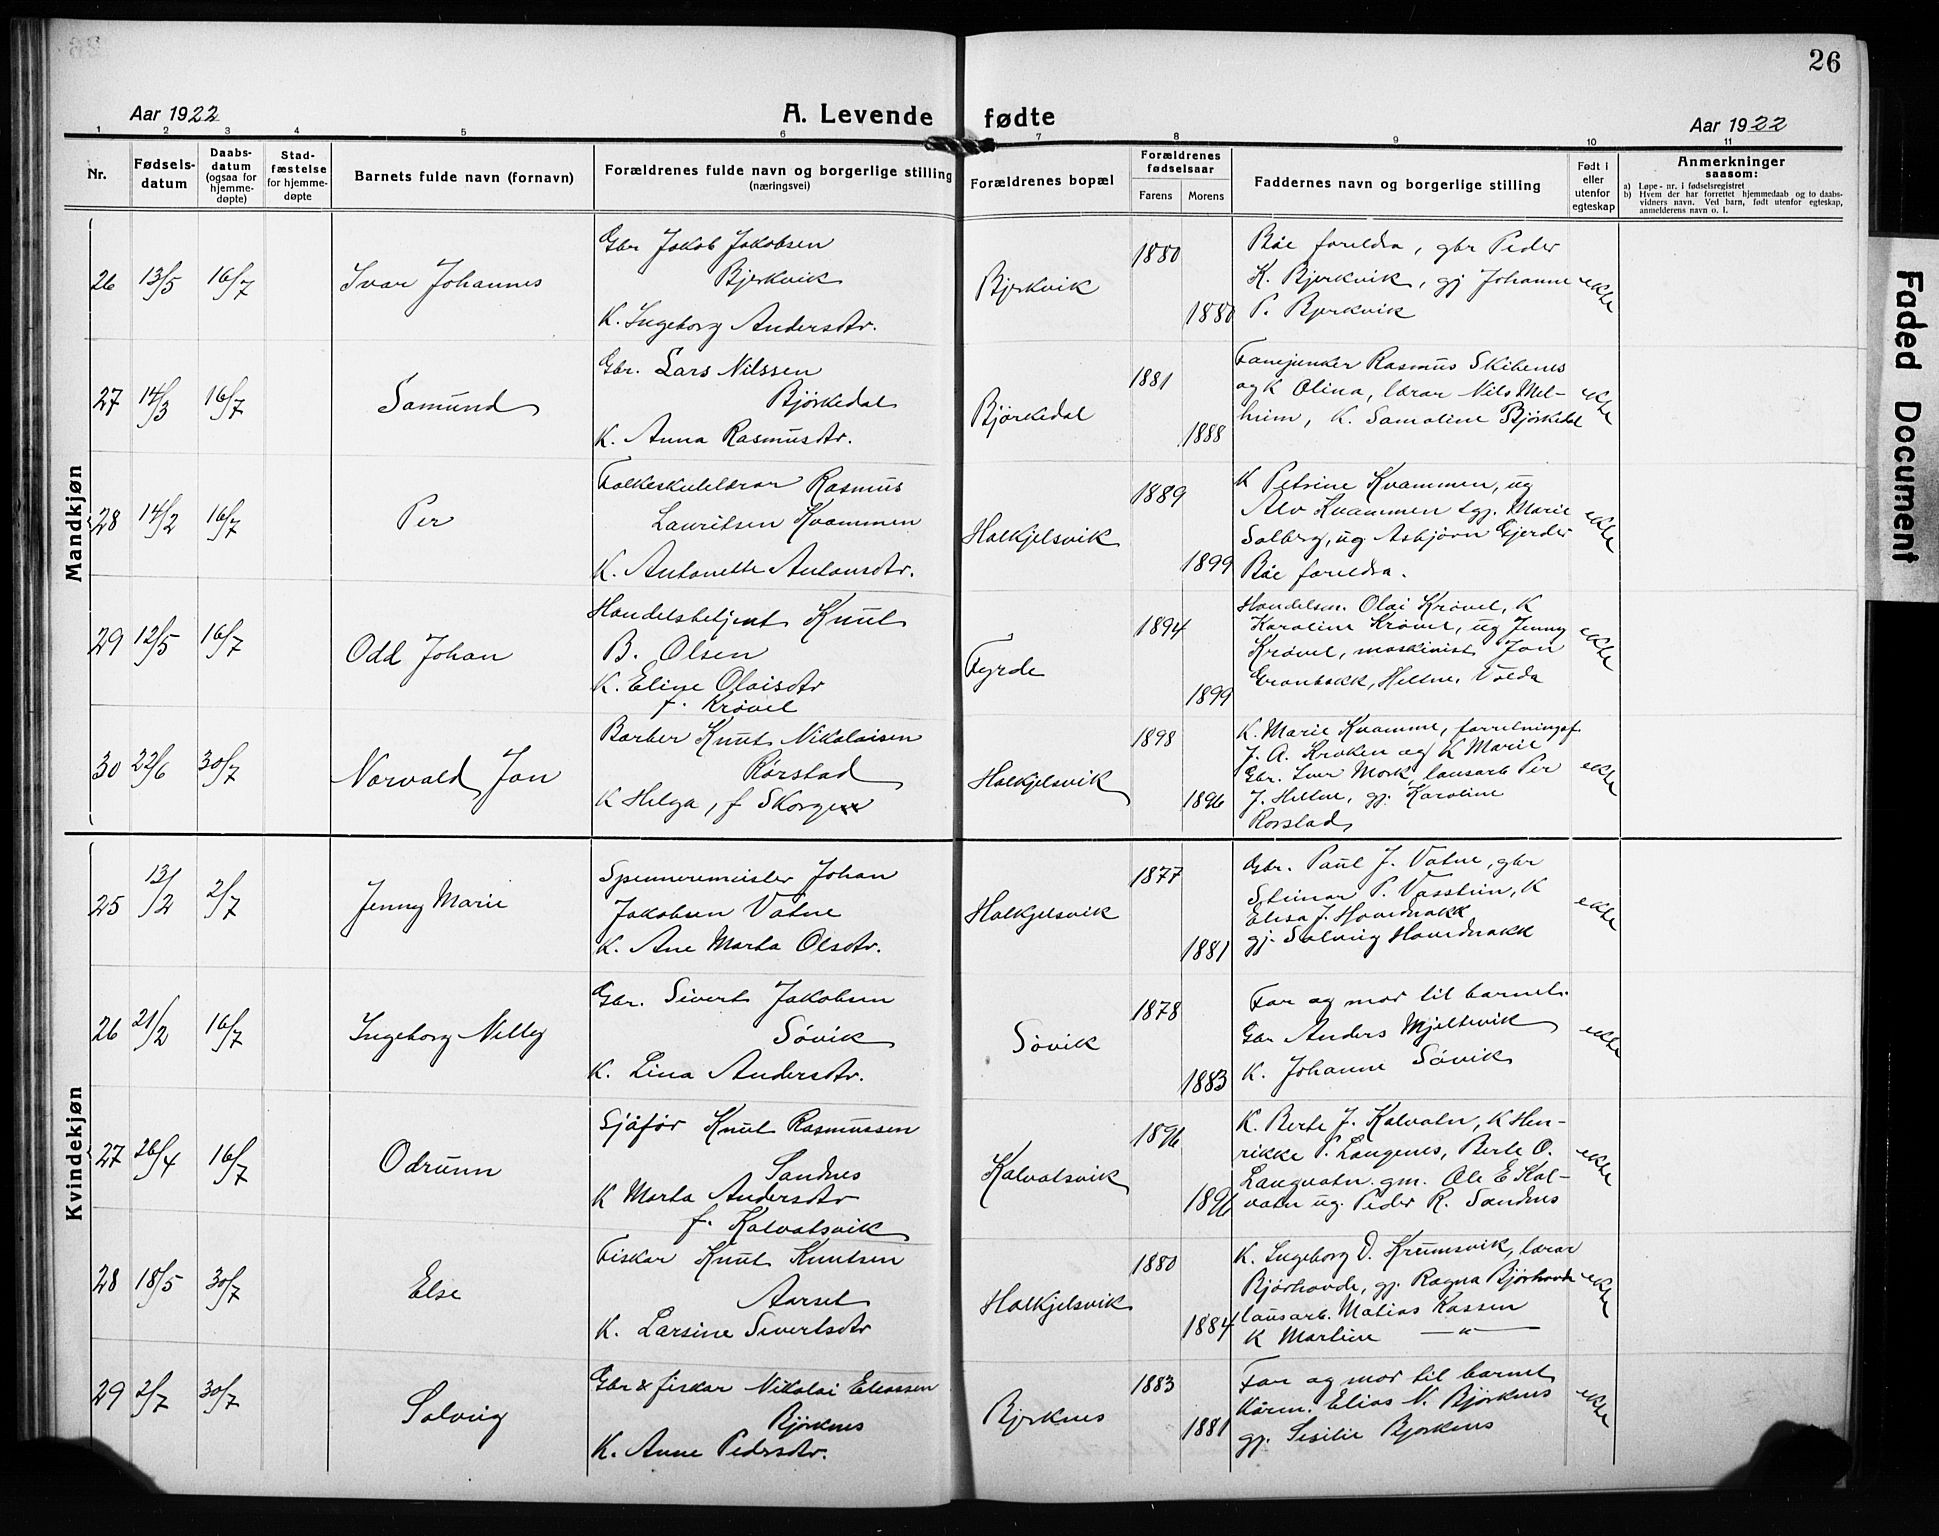 26
Aar 1922
A. Levende fødte
Aar 1922
1 2 3 4 5 6 7 8 9 10 11
Nr.
Fødsels-
datum
Daabs-
datum
(ogsaa for
hjemme-
døpte)
Stad-
fæstelse
for hjemme-
døpte
Barnets fulde navn (fornavn)
Forældrenes fulde navn og borgerlige stilling
(næringsvei)
Forældrenes bopæl
Forældrenes
fødselsaar
Farens Morens
Faddernes navn og borgerlige stilling
Født i
eller
utenfor
egteskap
Anmerkninger
saasom:
a) Løpe-nr. i fødselsregistret
b) Hvem der har forrettet hjemmedaab og to daabs-
vidners navn. Ved barn, født utenfor egteskap,
anmelderens navn o. l.
Mandkjøn
26 13/5 16/7 Ivar Johannes
Gbr Jakob Jakobsen
Bjerkvik
K. Ingeborg Andersdtr.
Bjerkvik
1880
1880
Båe foreldra, gbr Peder
K. Bjerkvik, gj Johanne
P. Bjerkvik
ekte
27 14/3 16/7 Samund
Gbr. Lars Nilssen
Bjørkedal
K. Anna Rasmusdtr.
Bjørkedal
1881
1888
Fanejunker Rasmus Skibenes
og K Olina, lærar Nils Mel-
heim, K. Samoline Bjørkedal
ekte
28 14/2 16/7 Per
Folkeskulelærar Rasmus
Lauritsen Kvammen
K. Antonette Antonsdtr.
Halkjelsvik
1889
1899
K Petrine Kvammen, ug
Alv Kvammen tgj. Marie
Solberg, ug Asbjørn Gjerder
Båe foreldra.
ekte
29 12/5 16/7 Odd Johan
Handelsbetjent Knut
B. Olsen
K. Eline Olaisdtr
f. Krøvel
Fyrde
1894
1899
Handelsm. Olai Krøvel, K
Karoline Krøvel, ug Jenny
Krøvel, maskinist Jon
Grønbakk, Heltne, Volda
ekte
30 22/6 30/7 Norvald Jon
Barber Knut Nikolaisen
Rørstad
K Helga, f Skorgen
Halkjelsvik
1898
1896
K. Marie Kvamme, forretningsf.
J. A. Kroken og K Marie
Gbr. Iver Mork, lausarb Per
J. Heltne, gj. Karoline
Rorstad
ekte
Kvindekjøn
25 13/2 2/7 Jenny Marie
Spennaremeister Johan
Jakobsen Vatne
K. Ane Marta Olsdtr.
Halkjelsvik
1877
1881
Gbr. Paul J. Vatne, gbr
Steinar P. Vasstein, K
Elisa J. Hovednakk
gj. Solveig Hovednakk
ekte
26 21/2 16/7 Ingeborg Nelly
Gbr. Sivert Jakobsen
Søvik
K. Lina Andersdtr.
Søvik
1878
1883
Far og mor til barnet.
Gbr Anders Mjeltevik
K. Johanne Søvik
ekte
27 26/4 16/7 Odrunn
Sjåfør Knut Rasmussen
Sandnes
K Marta Andersdtr
f. Kalvatsvik
Kalvatsvik
1896
1896
K. Berte J. Kalvatn, K Hen-
rikke P. Langenes, Berte O.
Langvatn. gm. Ole E Kal-
vatn ug. Peder R. Sandnes
ekte
28 18/5 30/7 Else
Fiskar Knut Knutsen
Aarset
K. Larsine Sivertsdtr
Halkjelsvik
1880
1884
K. Ingeborg D. Krumsvik, lærar
Bjørhovde, gj. Ragna Bjørhovde
lausarb. Matias Kassen
K Martine — " —
ekte
29 2/7 30/7 Solveig
Gbr & fiskar Nikolai Eliassen
Bjørknes
K. Anne Pedersdtr.
Bjerknes
1883
1881
Far og mor til barnet
Kårm. Elias N. Bjørknes
gj. Sesilie Bjørknes
ekte
Faded Document